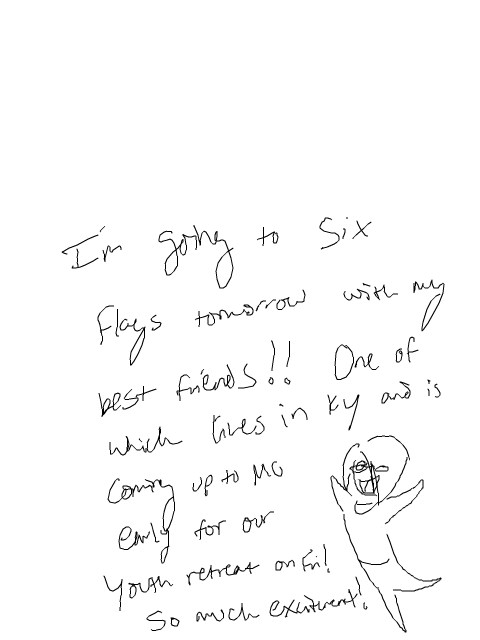 I'm going to Six
Flags tomorrow with my
best friends!! One of
which lives in KY and is
Coming up to MO
early for our
Youth retreat on Fri!
So much excitment!